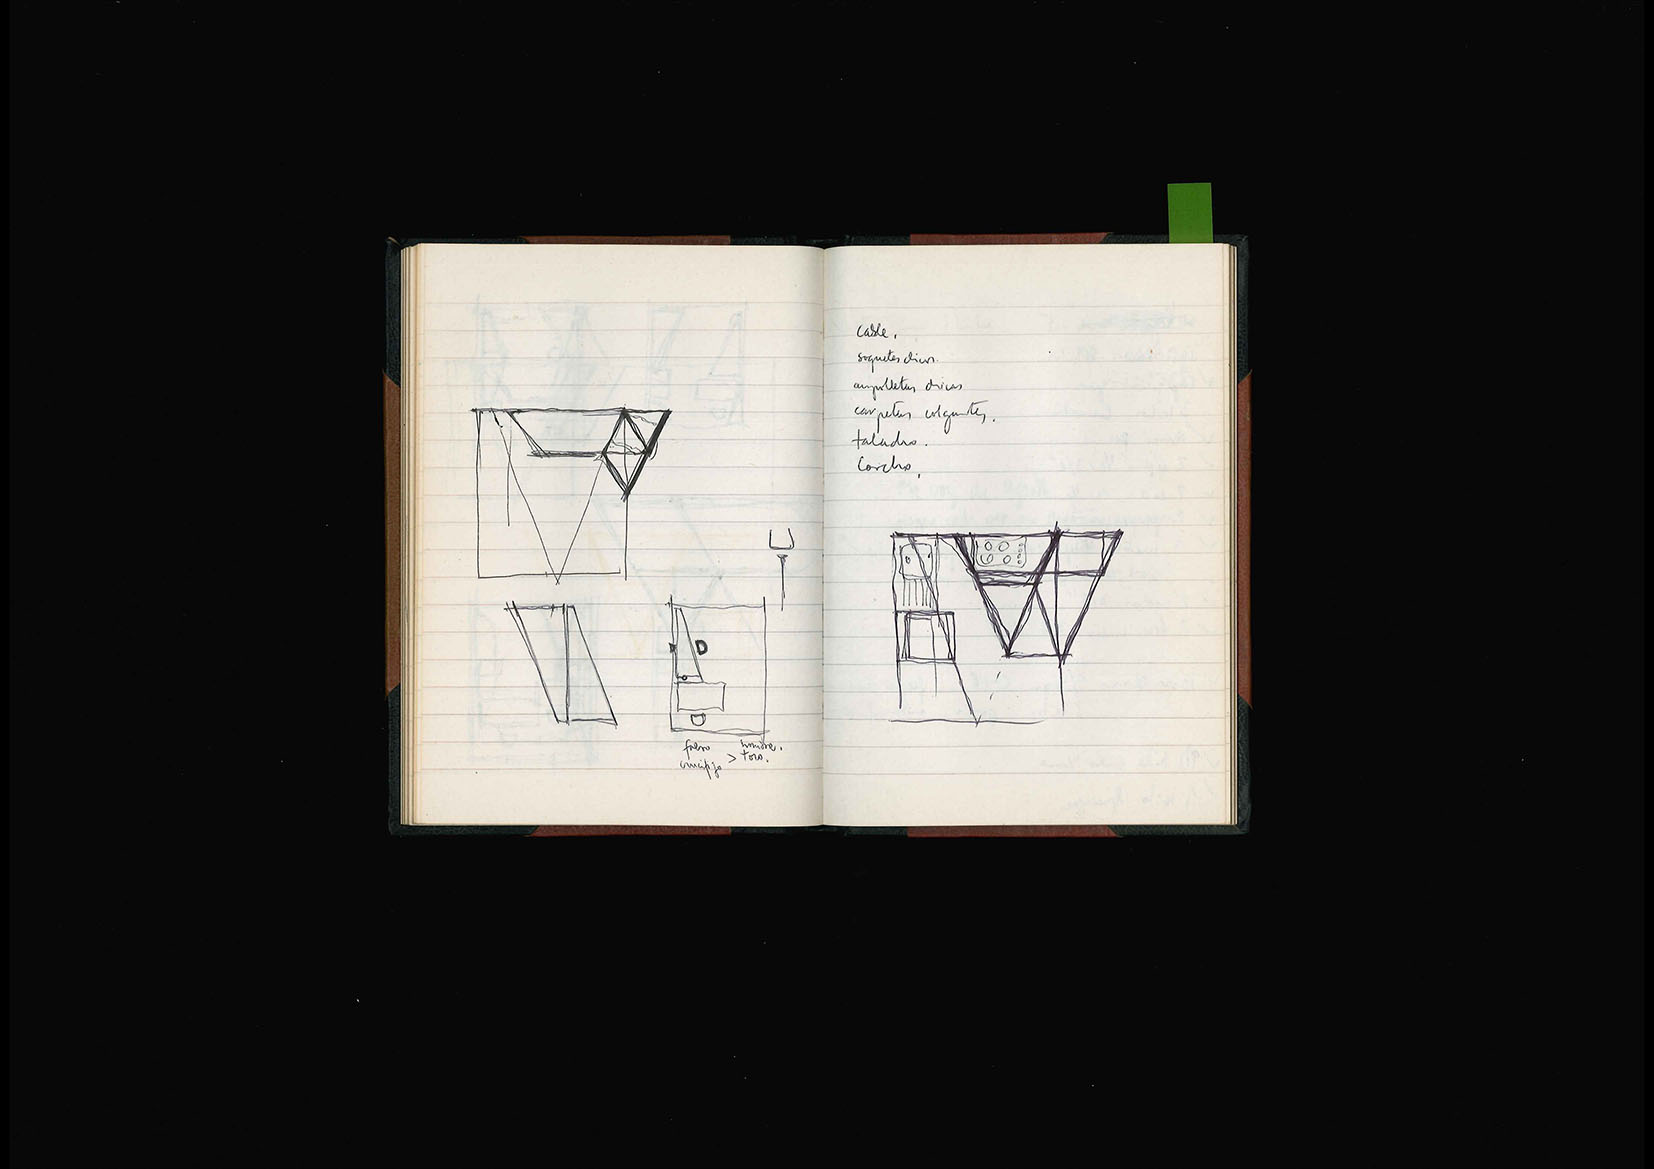 falso hombre.
crucifijo > toro.
cable.
soquetes dicro.
ampolletas dicros
carpetas colgantes.
taladro.
Corcho.